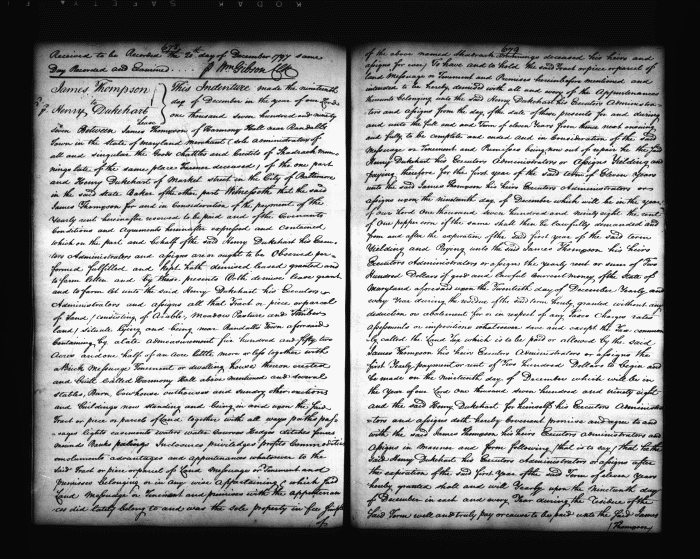 673
Received to be Recorded the 20th day of December 1797 same
Day Recorded and Examined . . . . . p Wm Gibson Clk
James Thompson This Indenture made the nineteenth
to day of December in the year of our Lord
Henry Dukehart one thousand seven hundred and ninety
Lease
seven Between James Thompson of Harmony Hall near Randalls
Town in the State of Maryland Merchant sole administrator of
all and singular the Goods Chattles and Credits of Shadrach
late of the same place Farmer deceased of the one part
and Henry Dukehart of Market street in the City of Baltimore
in the said State Baker of the other part Witnesseth that the said
James Thompson for and in Consideration of the payment of the
Yearly rent hereinafter reserved to be paid and of the Covenants
Conditions and Agreements hereinafter expressed and Contained
which on the part and behalf of the said Henry Dukehart his Execu
tors Administrators and assigns are or ought to be Observed per-
formed fulfilled and kept hath demised leased granted and
to farm letten and by these presents Doth demise lease grant
and to farm let unto the said Henry Dukehart his Executors
Administrators and assigns all that Tract or piece or parcel
of Land (consisting of Arable, Meadow Pasture and Timber
land) situate lying and being near Randalls Town aforesaid
Containing by a late admeasurement five hundred and fifty two
Acres and one half of an acre little more or less together with
a Brick Messuage Tenement or dwelling house thereon erected
and built called Harmony Hall above mentioned and several
stables, Barn Cowhouse outhouses and sundry other
and buildings now standing and being in and upon the said
Tract or piece or parcel of Land together with all ways paths pass
ages lights easements waters water Courses Hedges ditches fences
mounds Banks palings Inclosures priviledges profits Commodities
emoluments advantages and appurtenances whatsoever to the
said Tract or piece or parcel of Land Messuage or Tenement and
Premises belonging or in any wise Appertaining which said
Land Messuage or Tenement and premises with the appurtenan
ces did lately belong to and was the sole property in fee simple
of
674
of the above named Shadrach deceased his heirs and
assigns for ever To have and to hold the said Tract or piece or parcel of
land Messuage or Tenement and Premises hereinbefore mentioned and
intended to be hereby demised with all and every of the Appurtenances
thereunto belonging unto the said Henry Dukehart his Executors Administra
tors and assigns from the day of the date of these presents for and during
and unto the full end and Term of eleven Years from thence next ensuing
and fully to be complete and ended in consideration of the said
Messuage or Tenement and Premises being now out of repair he the said
Henry Dukehart his Executors Administrators or Assigns Yielding and
paying therefore for the first year of the said term of Eleven Years
unto the said James Thompson his heirs Executors Administrators or
assigns upon the nineteenth day of December which will be in the year
of our Lord One thousand seven hundred and ninety eight the rent
of One pepper corn if the same shall then be lawfully demanded and
from and after the expiration of the said first year of the said term
Yielding and Paying unto the said James Thompson his heirs
Executors Administrators or assigns the yearly rent or sum of Two
Hundred Dollars of good and Lawful current money of the State of
Maryland aforesaid upon the Twentieth day of December Yearly and
every Year during the residue of the said term hereby granted without any
deduction or abatement for or in respect of any taxes Charges rates
Assessments or impositions whatsoever save and except the Tax common
ly called the Land Tax which is to be paid or allowed by the said
James Thompson his heirs Executors Administrators or assigns the
first Yearly payment or rent of Two hundred Dollars to begin and
be made on the nineteenth day of December which will be in
the Year of our Lord One thousand seven hundred and ninety eight
and the said Henry Dukehart for himself his Executors Administra
tors and assigns doth hereby Covenant promise and agree to and
with the said James Thompson his heirs Executors administrators and
Assigns in manner and form following, that is to say, that he the
said Henry Dukehart his Executors Administrators or assigns after
the expiration of the said first Year of the said Term of eleven Years
hereby granted shall and will Yearly upon the Nineteenth day
of December in each and every Year during the residue of the
said Term well and truly pay or cause to be paid unto the said James
Thompson